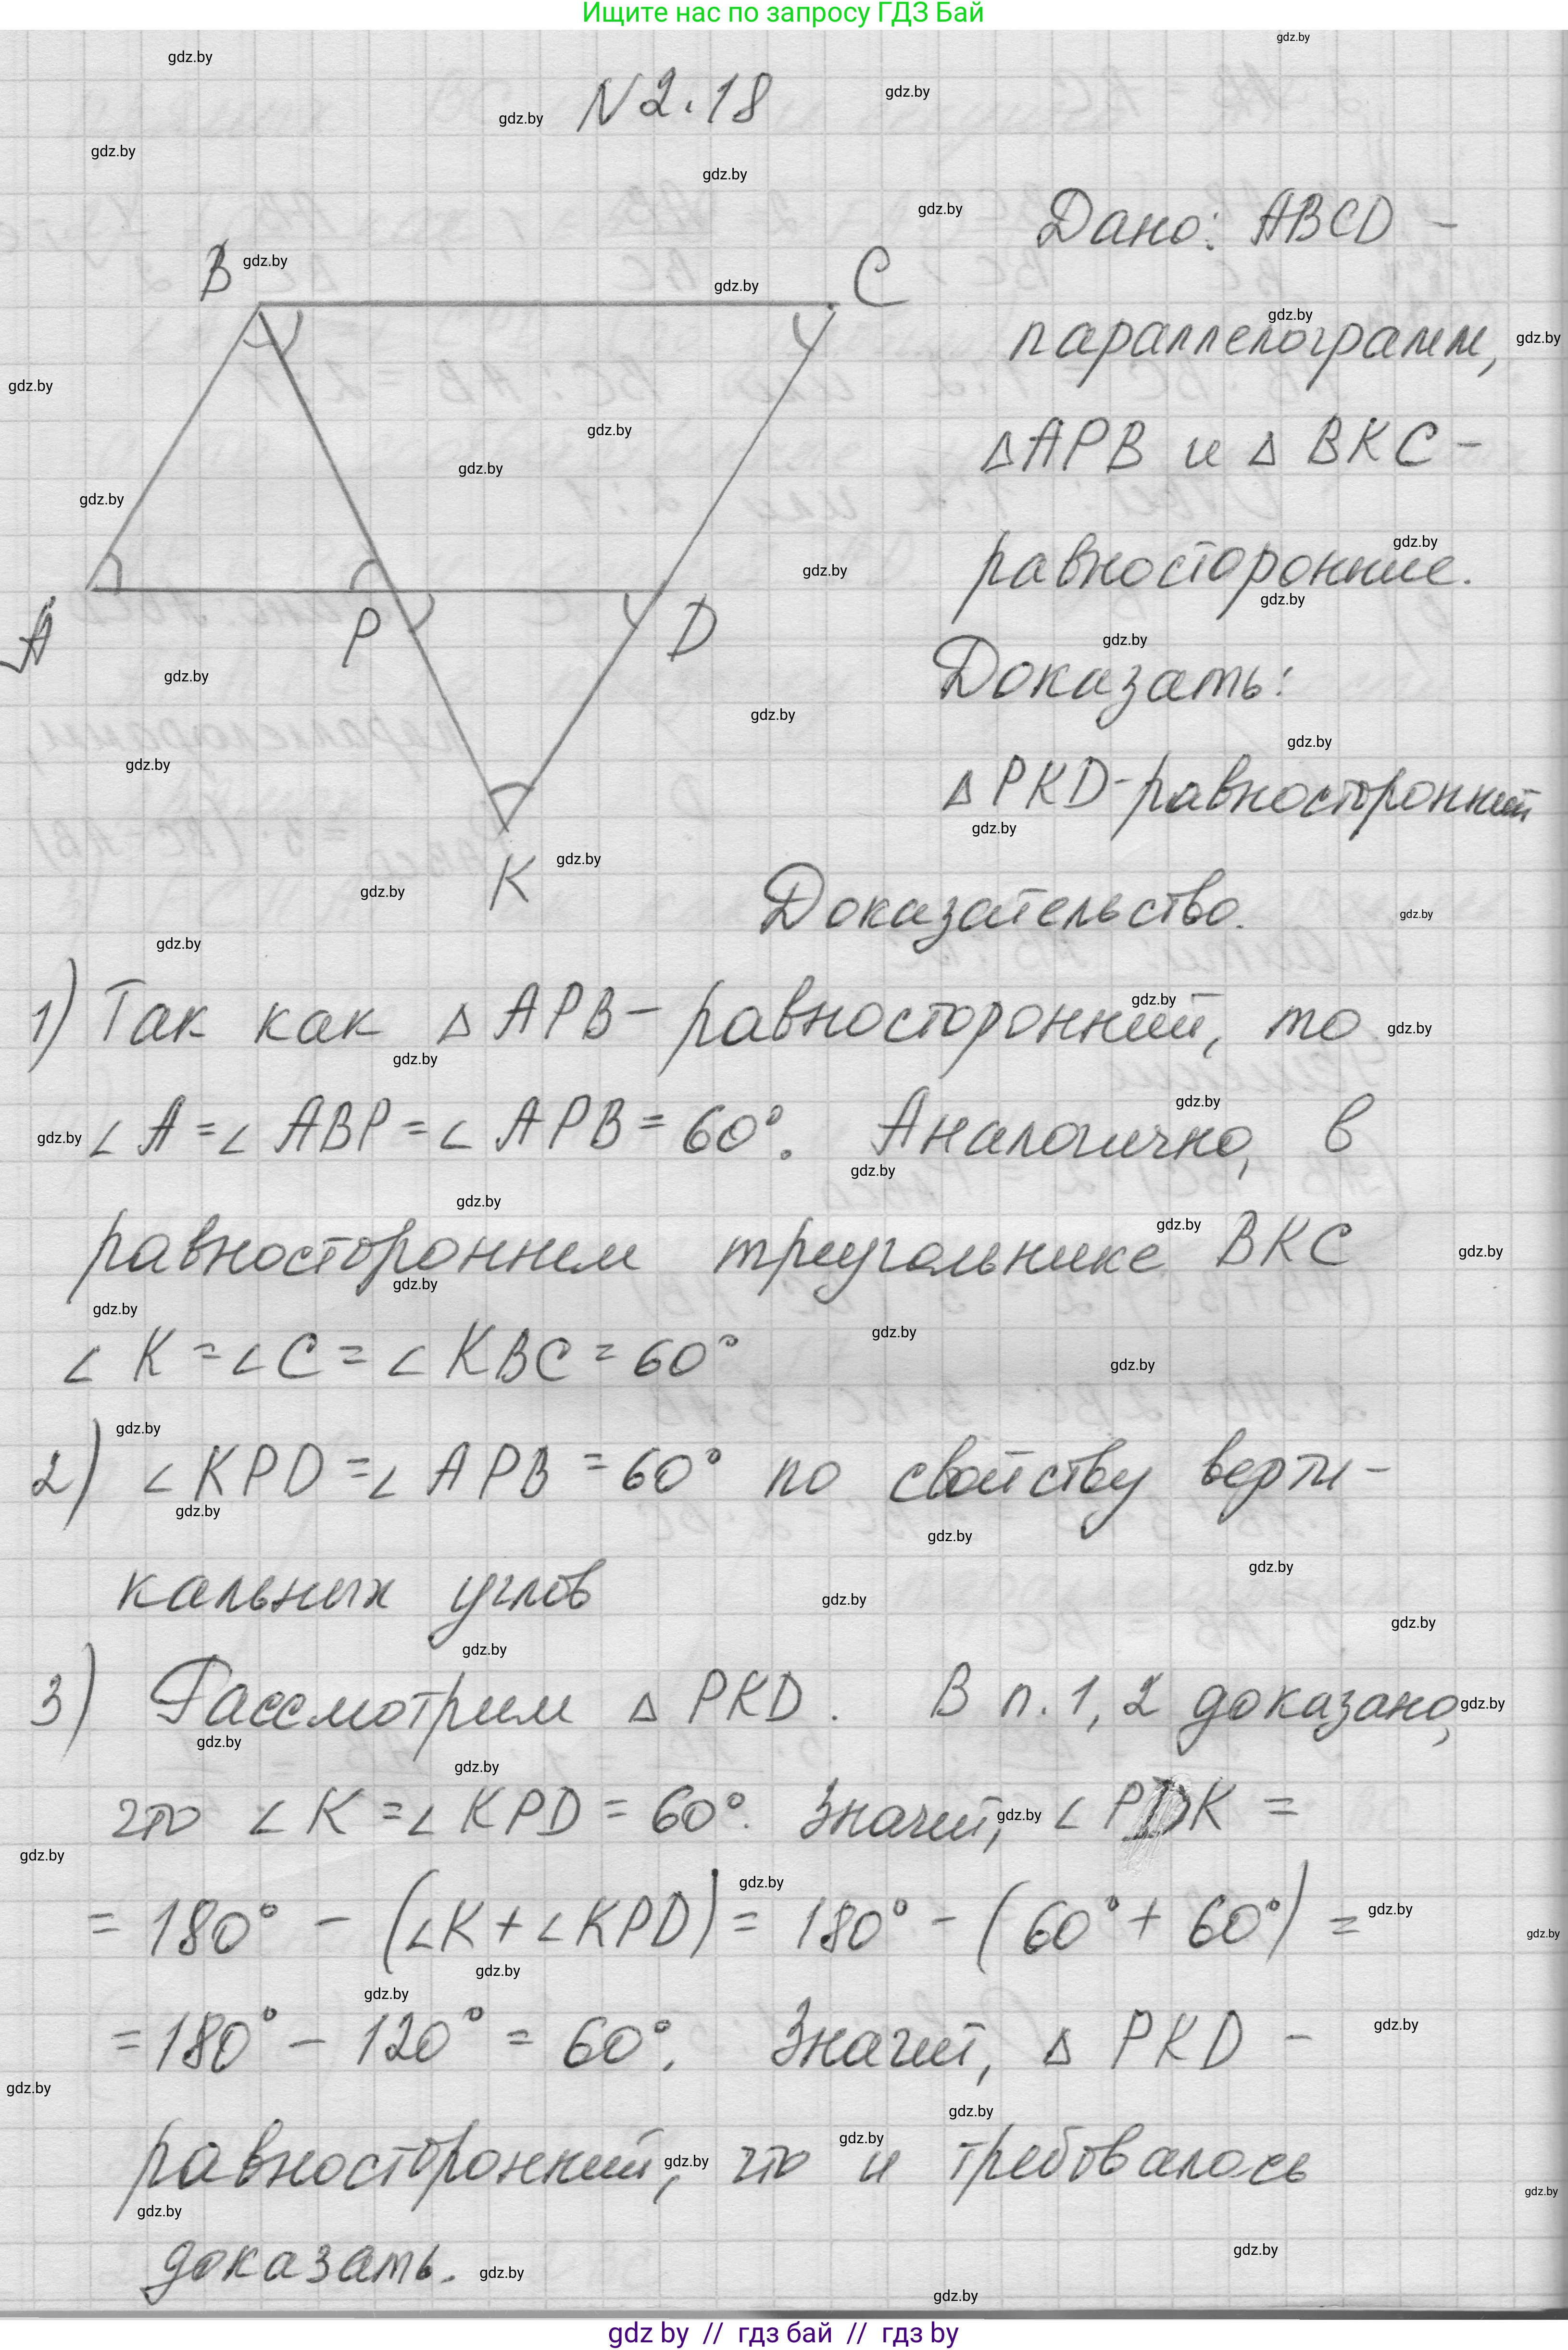 Ищите нас по запросу ГДЗ Бай
N 2.18
Дано: ABCD -
параллелограмм,
Δ APB и Δ BKC -
равносторонние.
Доказать:
Δ PKD - равносторонний
B
C
A
P
D
K
Доказательство.
1) Так как Δ APB - равносторонний, то
∠ A = ∠ ABP = ∠ APB = 60°. Аналогично, в
равностороннем треугольнике BKC
∠ K = ∠ C = ∠ KBC = 60°
2) ∠ KPD = ∠ APB = 60° по свойству верти-
кальных углов
3) Рассмотрим Δ PKD. В п. 1, 2 доказано,
что ∠ K = ∠ KPD = 60°. Значит, ∠ PDK =
= 180° - (∠K + ∠KPD) = 180° - (60° + 60°) =
= 180° - 120° = 60°. Значит, Δ PKD -
равносторонний, что и требовалось
доказать.
gdz by // гдз бай // гдз by